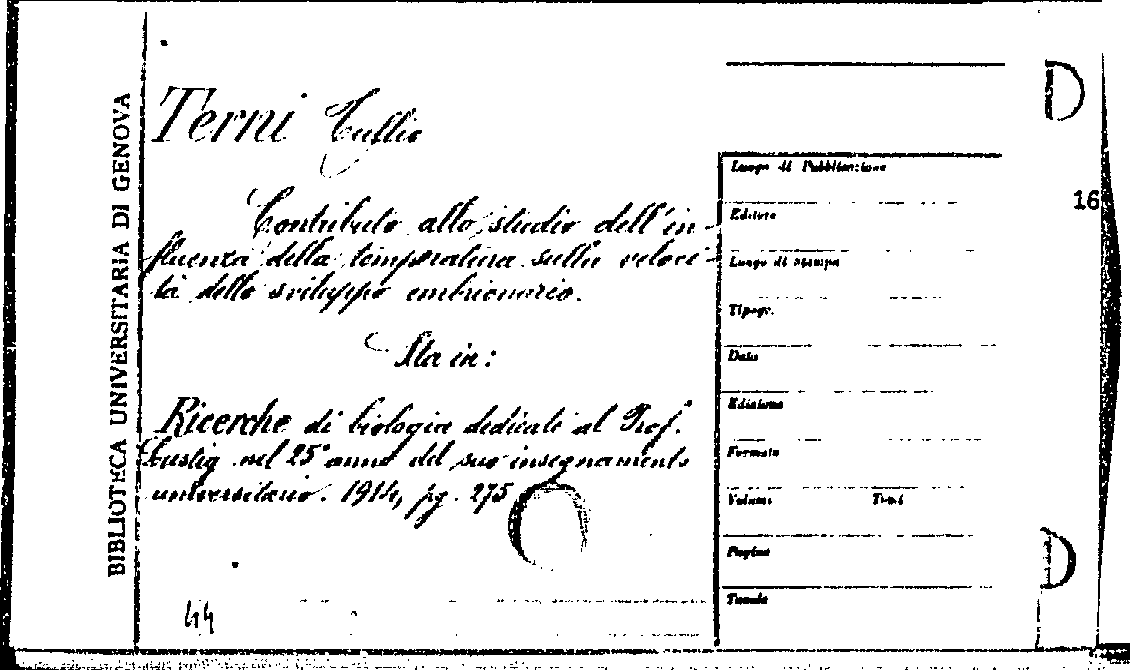 BIBLIOTECA UNIVERSITARIA DI GENOVA
Terni Tullio
Contributo allo studio dell'in-
fluenza della temperatura sulla veloci-
tà dello sviluppo embrionario.
Sta in:
Ricerche di biologia dedicate al Prof.
Lustig nel 25° anno del suo insegnamento
universitario. 1914, pg. 275
44
Luogo di Pubblicazione
Editore
Luogo di stampa
Tipogr.
Data
Edizione
Formato
Volumi Tomi
Pagine
Tavole
16